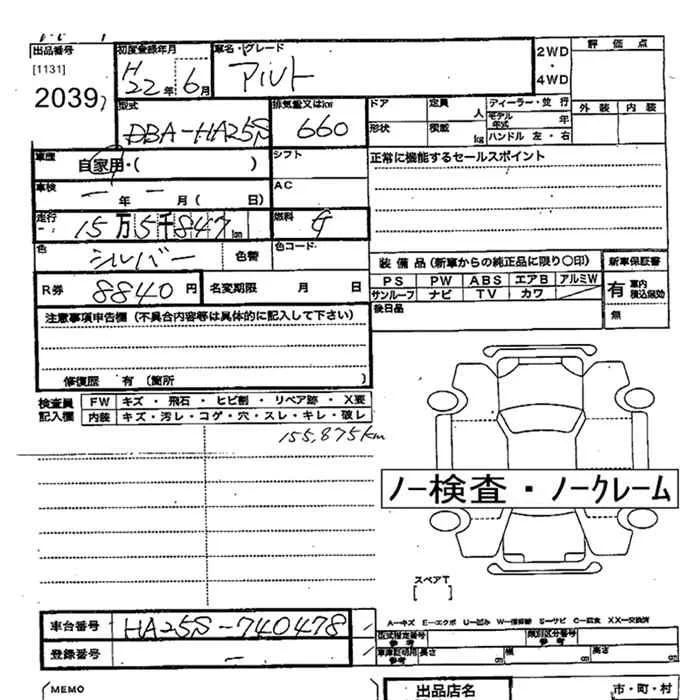 出品番号 初度登録年月 車名・グレード 2WD ・ 4WD 評価点
[1131] H22年6月 アルト 外装 内装
2039
型式 DBA-HA25S 排気量又はkw 660 ドア 定員 人 ディーラー・並行
形状 積載 kg モデル年式 年 ハンドル 左・右
車歴 自家用・( ) シフト 正常に機能するセールスポイント
車検 ー年ー月( 日) AC
走行 15万5千847km 燃料 G
色 シルバー 色替 色コード
装備品(新車からの純正品に限り○印) 新車保証書
R券 8840円 名変期限 月 日 PS PW ABS エアB アルミW 有 車内積込無効
サンルーフ ナビ TV カワ
注意事項申告欄(不具合内容等は具体的に記入して下さい) 後日品 無
修復歴 有(箇所 )
検査員 FW キズ・飛石・ヒビ割・リペア跡・X要
記入欄 内装 キズ・汚レ・コゲ・穴・スレ・キレ・破レ
155,875km
ノー検査・ノークレーム
スペアT
[ ]
車台番号 HA25S-740478 A-キズ E-エクボ U-凹み W-補修跡 S-サビ C-腐食 XX-交換済
型式指定番号 参考 類別区分番号 参考
登録番号 ー 車庫証明用 参考 長さ cm 幅 cm 高さ cm
MEMO 出品店名 市・町・村